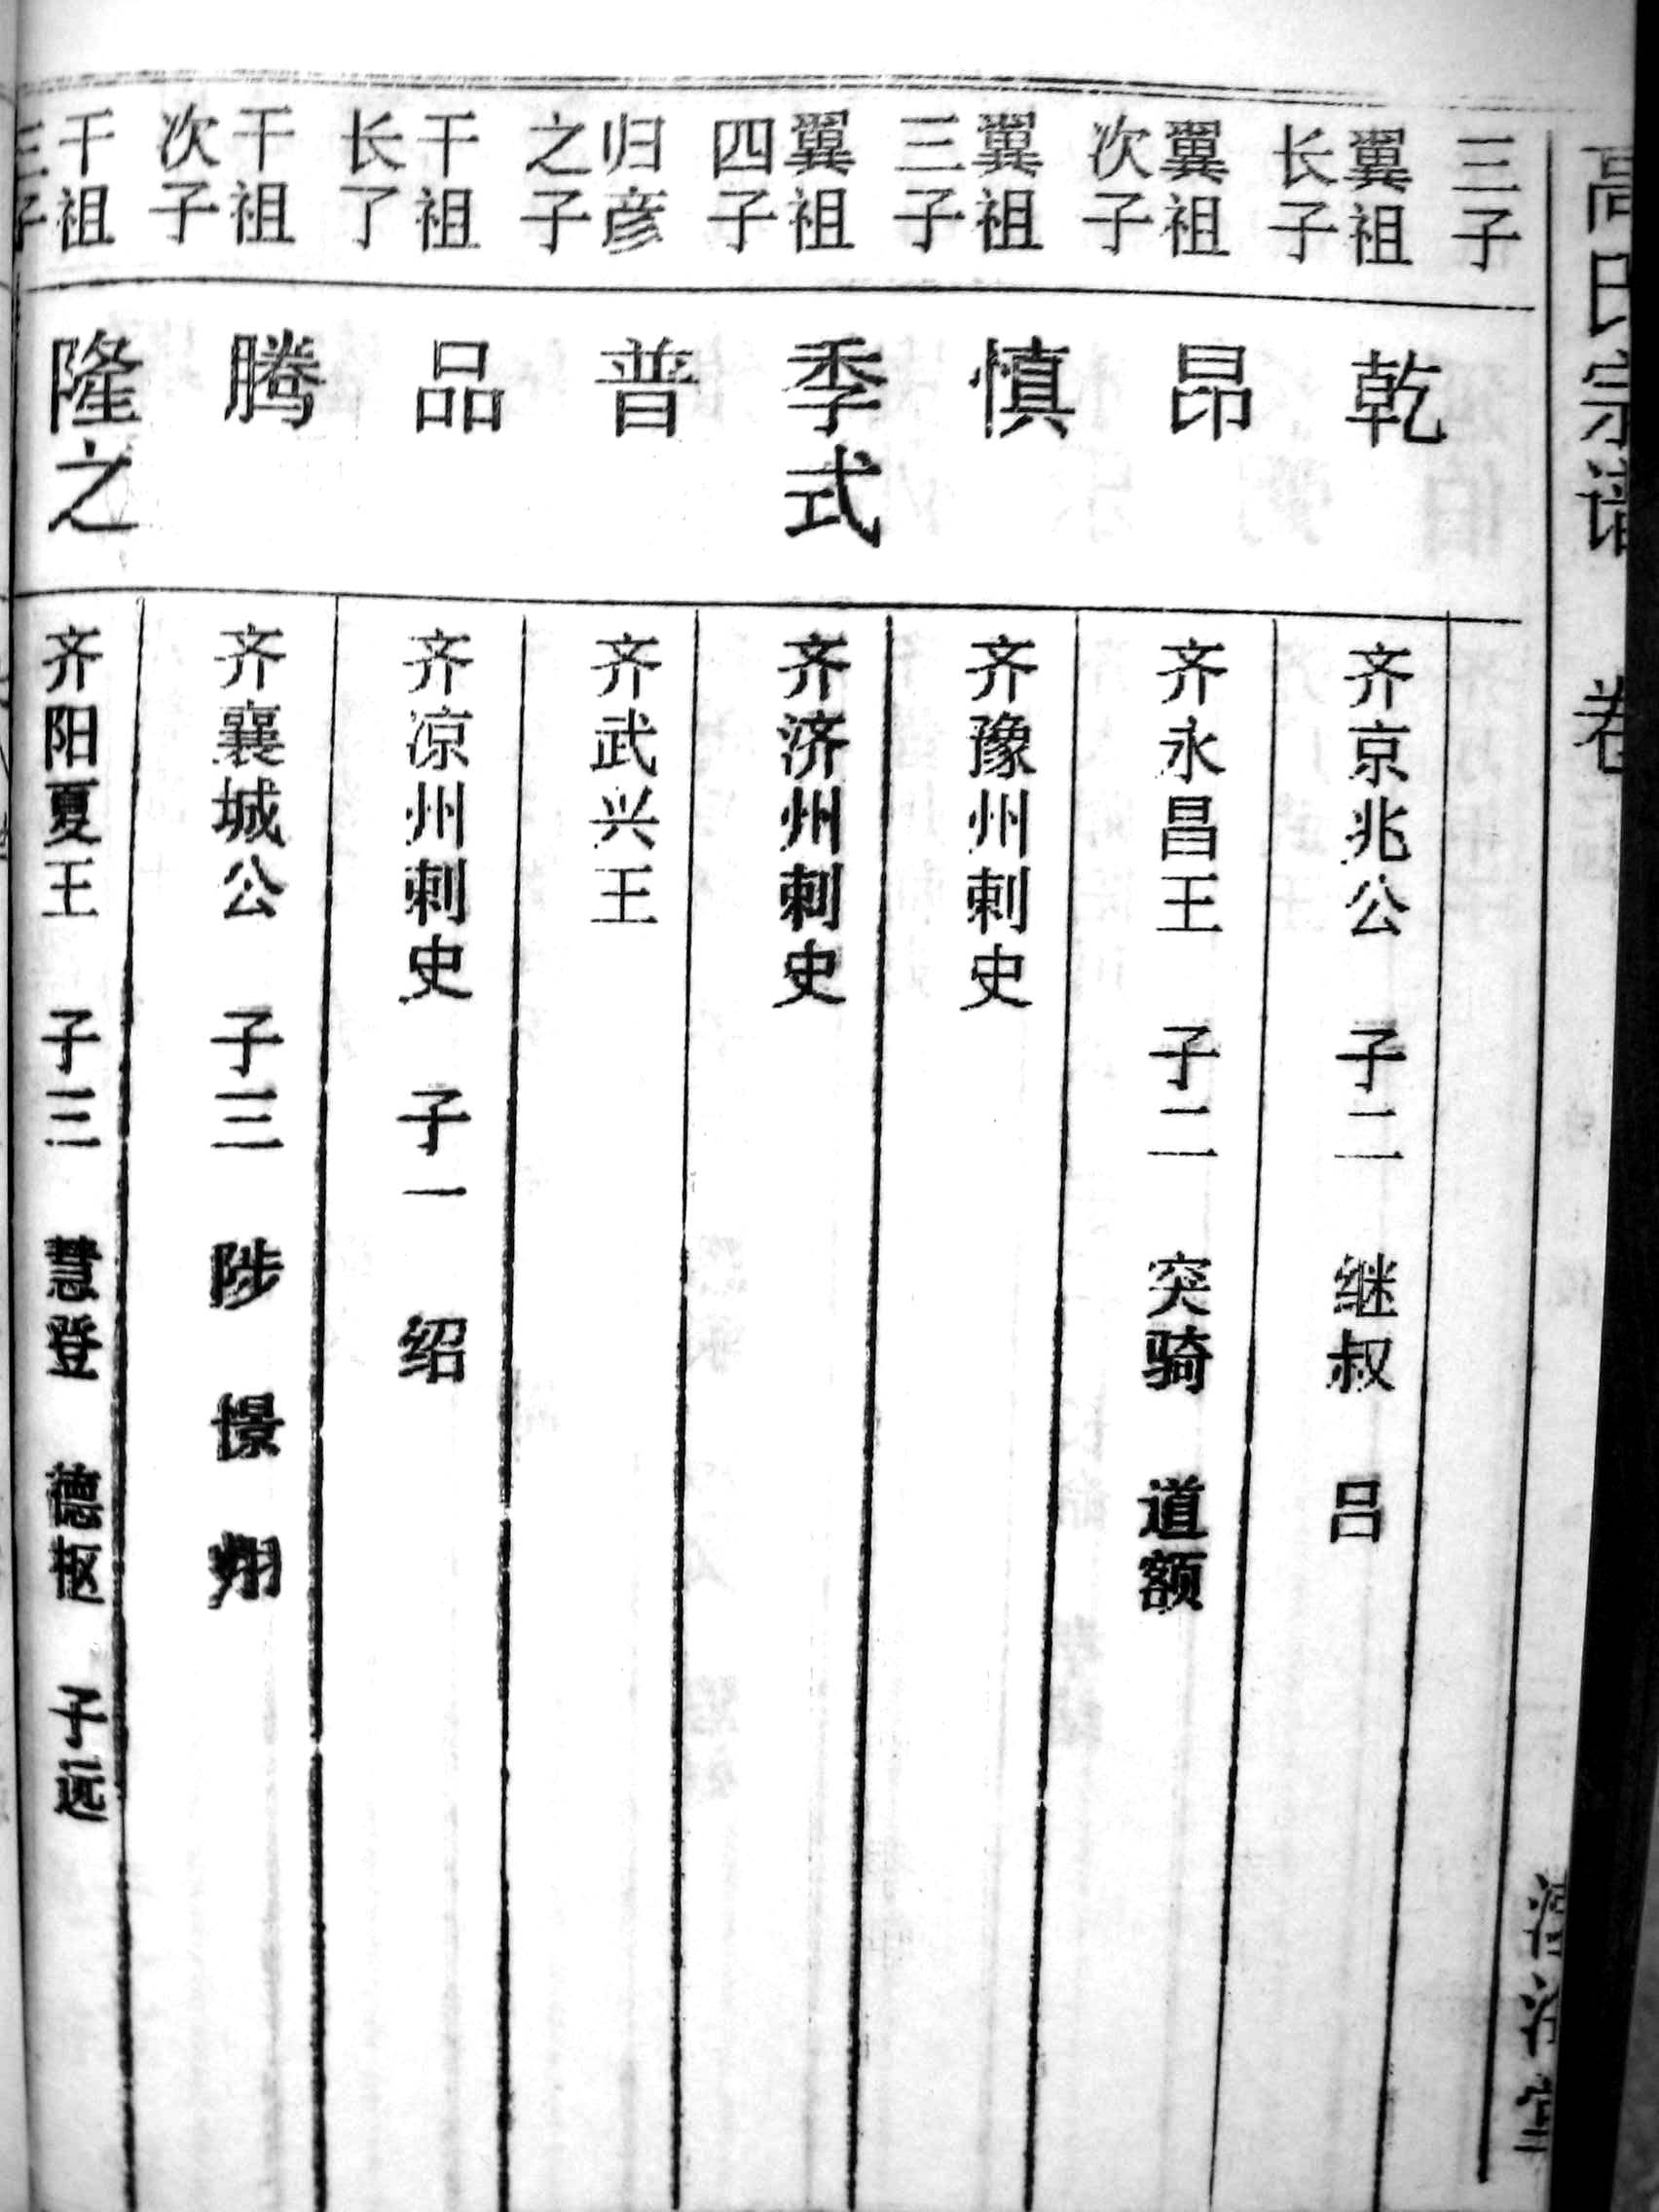 高氏宗谱 卷
三子
翼祖长子
乾
齐京兆公 子二 继叔 吕
翼祖次子
昂
齐永昌王 子二 突骑 道额
翼祖三子
慎
齐豫州刺史
翼祖四子
季式
齐济州刺史
归彦之子
普
齐武兴王
干祖长了
品
齐凉州刺史 子一 绍
干祖次子
腾
齐襄城公 子三 陟 憬 翙
干祖三子
隆之
齐阳夏王 子三 慧登 德枢 子远